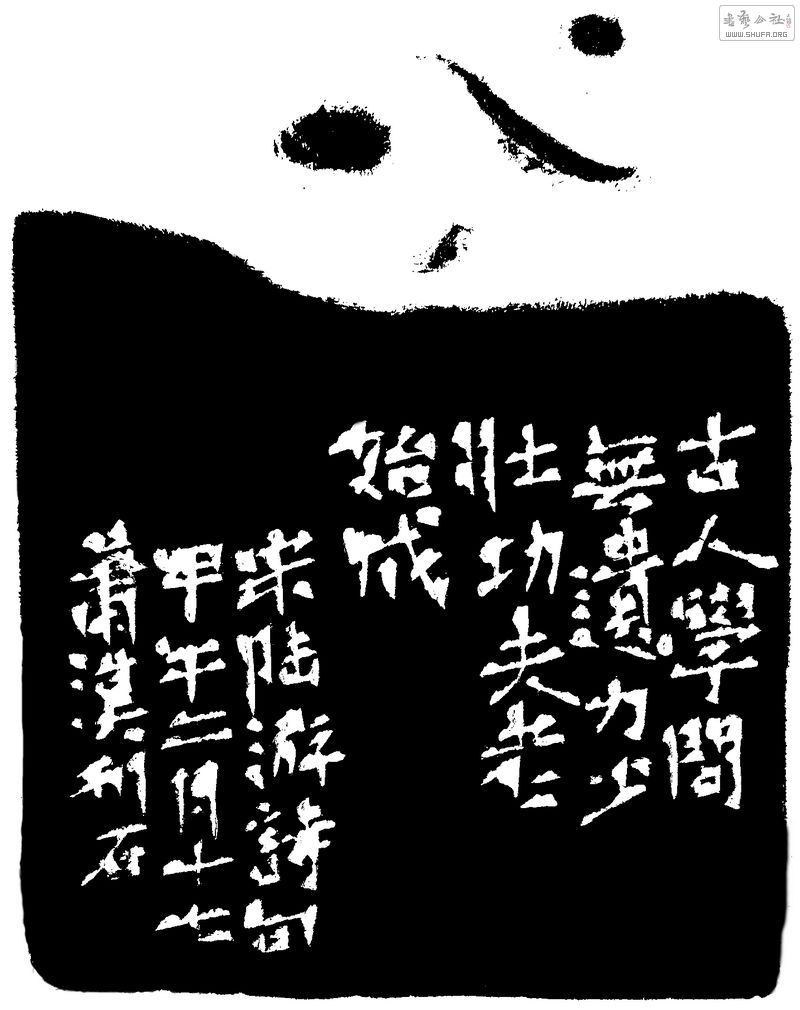 古人學問
無遺力少
壯功夫老
始成
宋陆游詩句
甲午二月十七
蕭漢利石
書藝公社
WWW.SHUFA.ORG